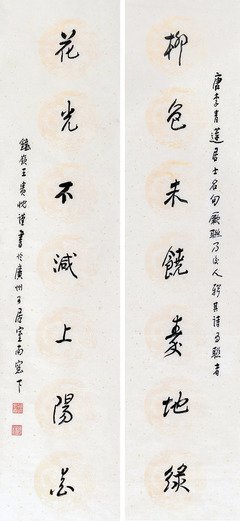 唐李青蓮居士名句聯乃後人移其詩為聯者
柳色未饒秦地綠
花光不減上陽紅
鐵嶺王貴忱謹書於廣州可居室南窗下